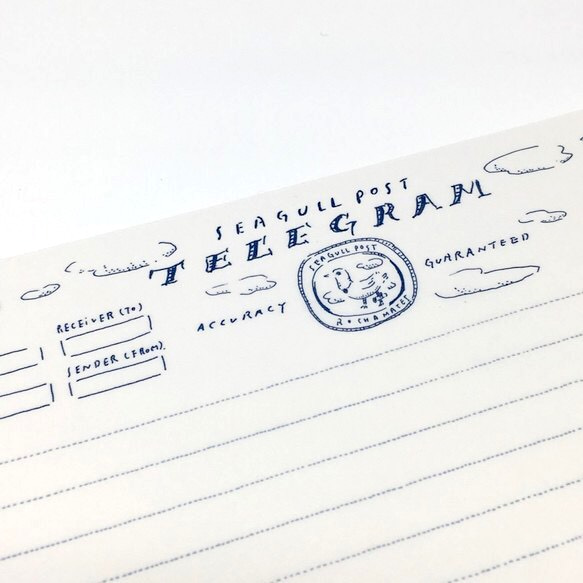 SEAGULL POST
TELEGRAM
SEAGULL POST
ACCURACY
GUARANTEED
RECEIVER (TO)
SENDER (FROM).